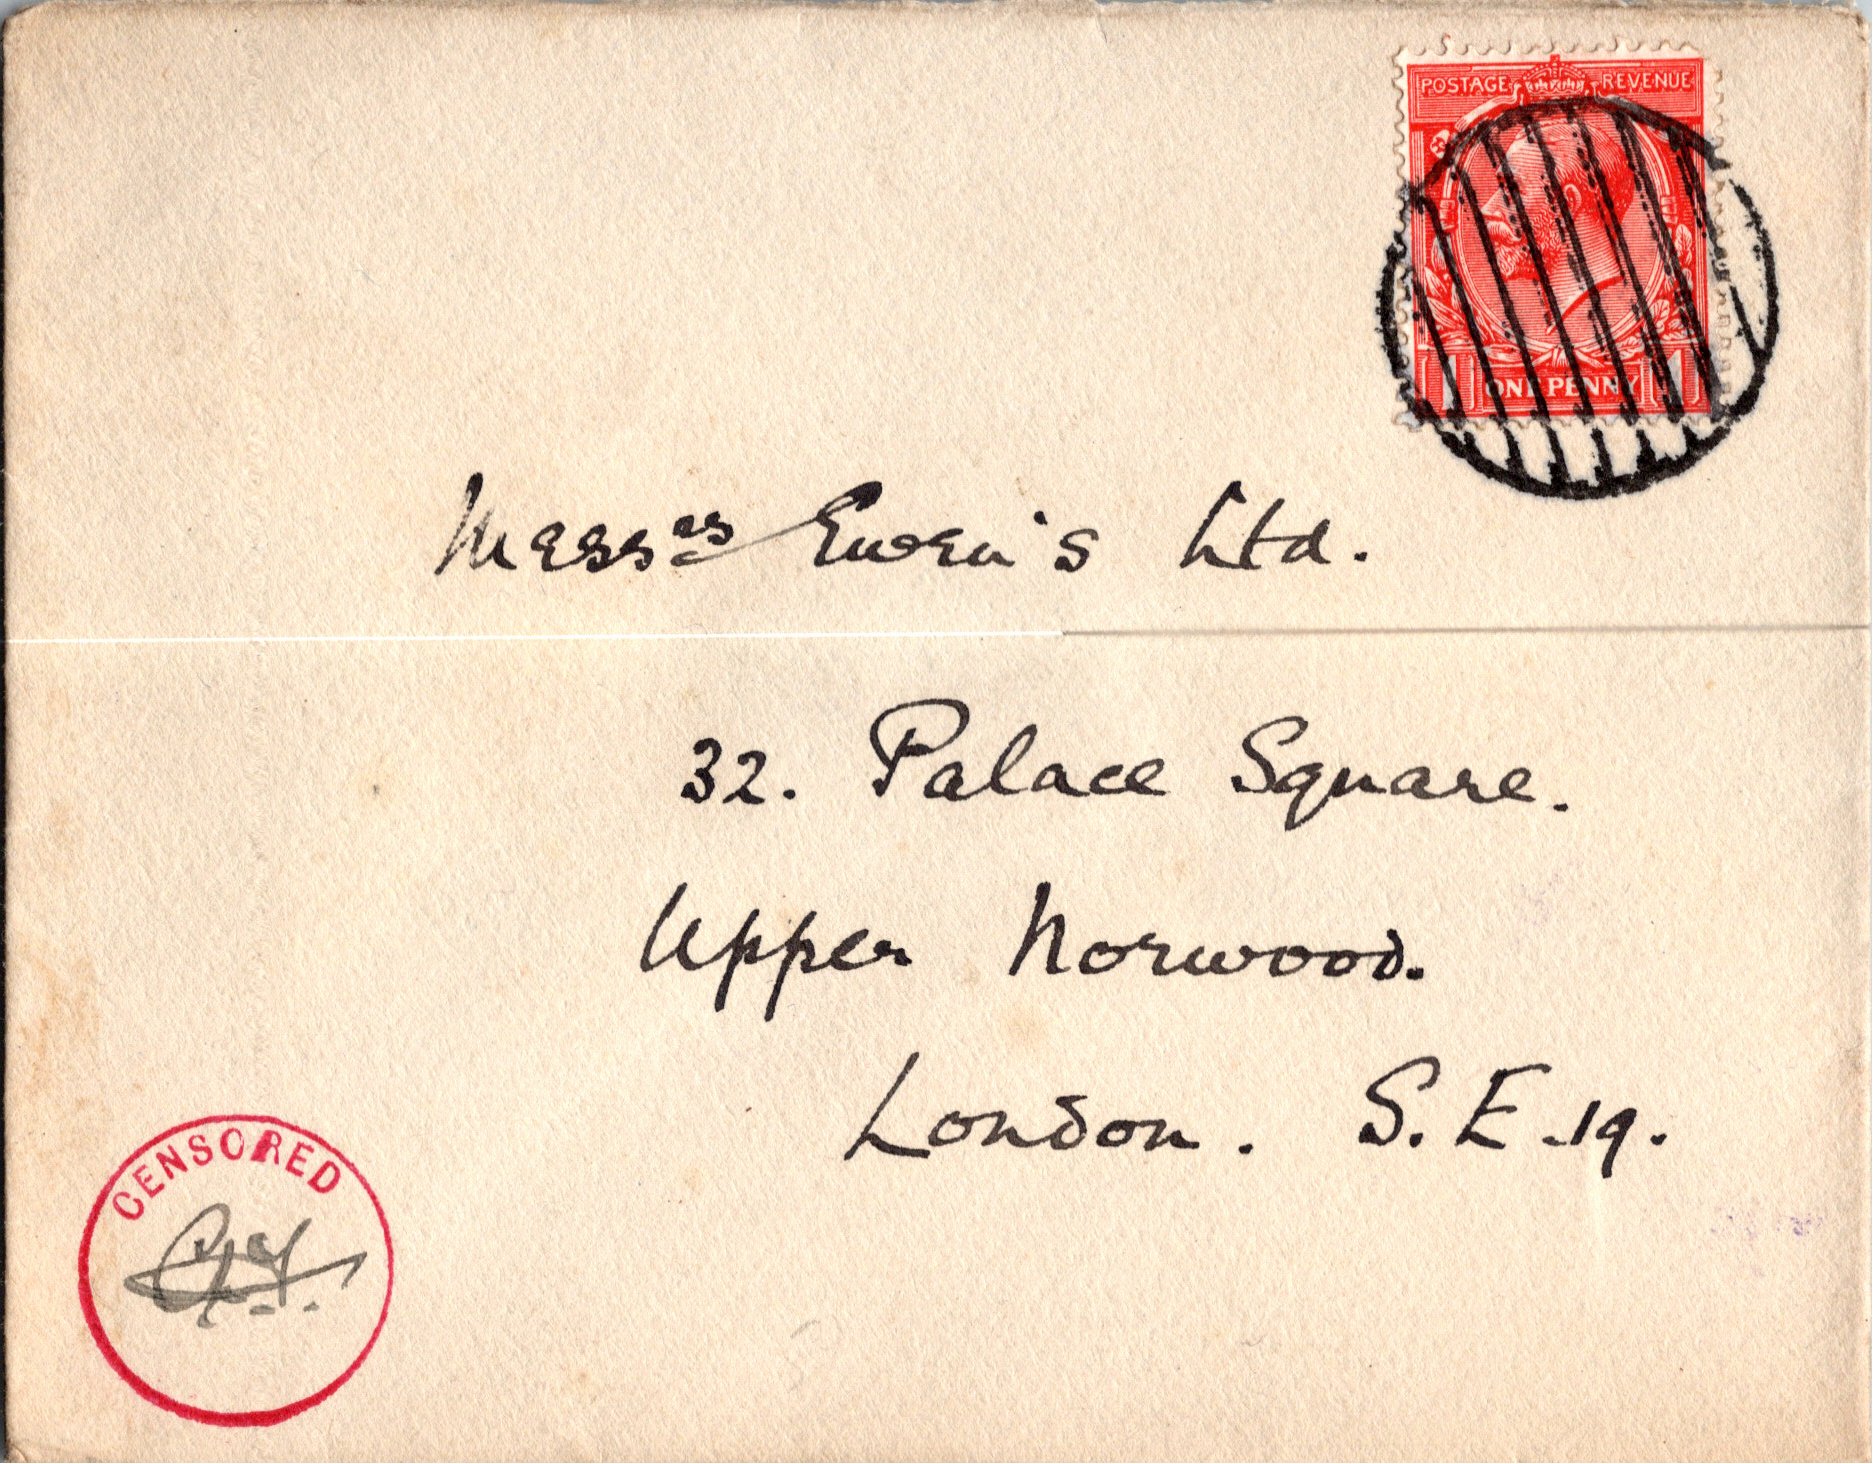 POSTAGE REVENUE
ONE PENNY
Mess.rs Ewen's Ltd.
32. Palace Square.
Upper Norwood.
London. S.E.19.
CENSORED